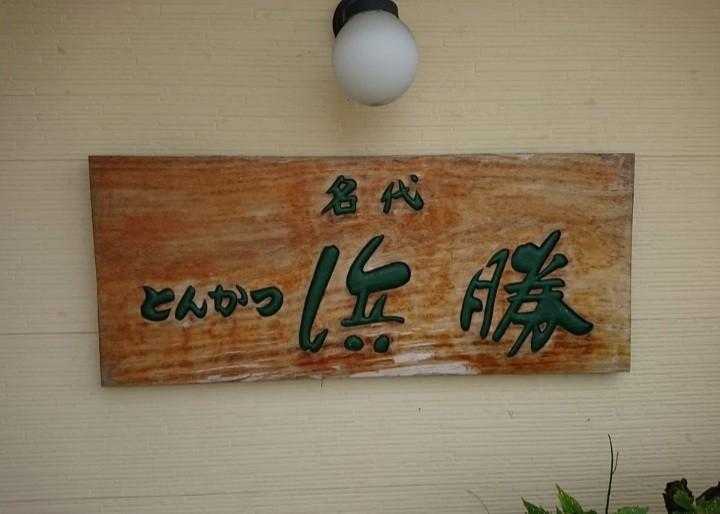 名代
とんかつ 浜勝